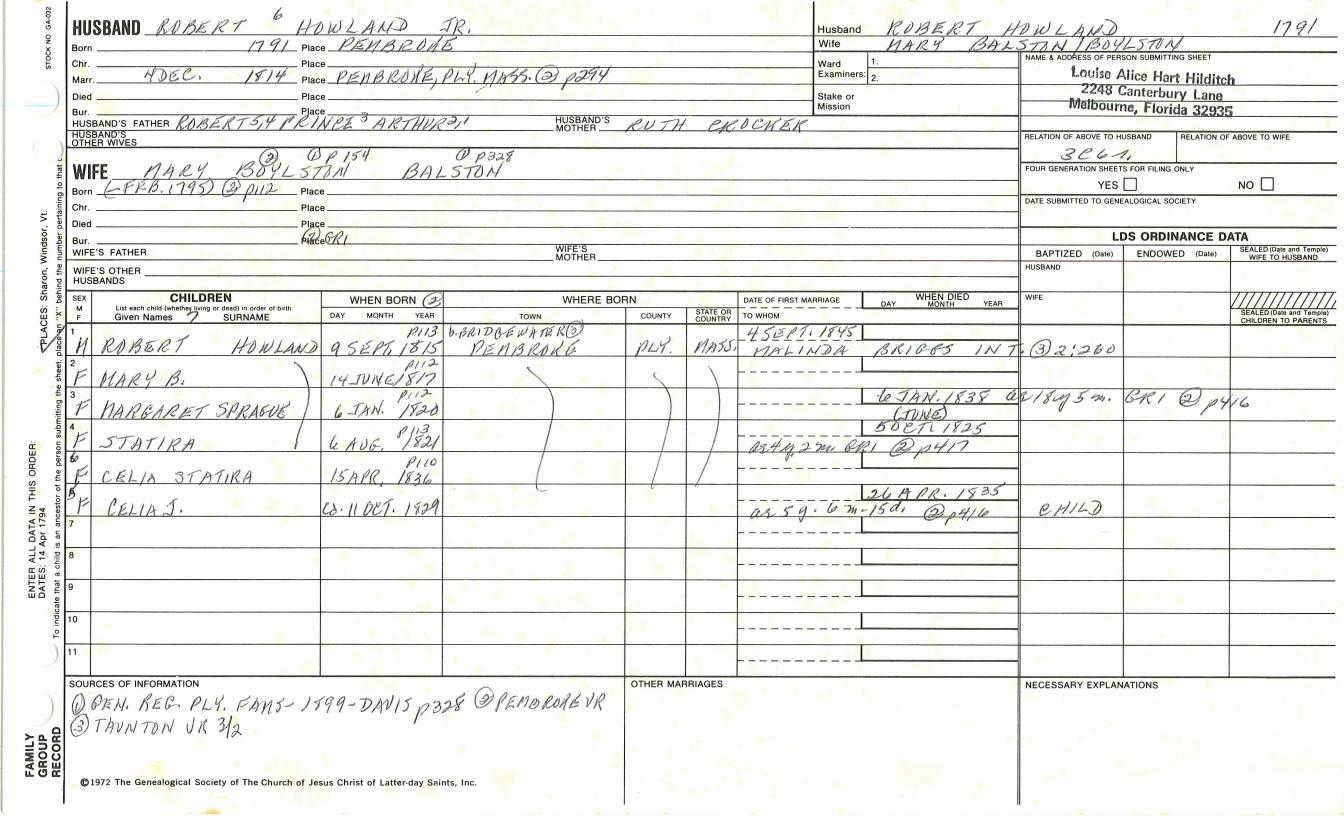 STOCK NO GA-032
HUSBAND ROBERT 6 HOWLAND JR.
Born 1791 Place PEMBROKE
Chr. Place
Marr. 4 DEC. 1814 Place PEMBROKE, PLY. MASS. ② p294
Died Place
Bur. Place
HUSBAND'S FATHER ROBERT 5,4 PRINCE 3 ARTHUR 2,1 HUSBAND'S MOTHER RUTH CROCKER
HUSBAND'S OTHER WIVES
② ① P 154 ① p328
WIFE MARY BOYLSTON BALSTON
Born (-FEB. 1795) ② p112 Place
Chr. Place
Died Place
Bur. Place ② GR1
WIFE'S FATHER WIFE'S MOTHER
WIFE'S OTHER HUSBANDS
Husband ROBERT HOWLAND 1791
Wife MARY BALSTON/BOYLSTON
Ward Examiners: 1.
2.
Stake or Mission
NAME & ADDRESS OF PERSON SUBMITTING SHEET
Louise Alice Hart Hilditch
2248 Canterbury Lane
Melbourne, Florida 32935
RELATION OF ABOVE TO HUSBAND RELATION OF ABOVE TO WIFE
3C6r.
FOUR GENERATION SHEETS FOR FILING ONLY
YES NO
DATE SUBMITTED TO GENEALOGICAL SOCIETY
LDS ORDINANCE DATA
BAPTIZED (Date) ENDOWED (Date) SEALED (Date and Temple) WIFE TO HUSBAND
HUSBAND
WIFE
SEALED (Date and Temple) CHILDREN TO PARENTS
SEX M F CHILDREN WHEN BORN ② WHERE BORN DATE OF FIRST MARRIAGE WHEN DIED
List each child (whether living or dead) in order of birth
Given Names 7 SURNAME DAY MONTH YEAR TOWN COUNTY STATE OR COUNTRY TO WHOM DAY MONTH YEAR
1 P113 b. BRIDGEWATER ② 4 SEPT. 1845
M ROBERT HOWLAND 9 SEPT. 1815 PEMBROKE PLY. MASS. MALINDA BRIGGS INT. ③ 2:260
2 P112
F MARY B. 14 JUNE 1817
3 P112 6 JAN. 1838 ae 18 y 5 m. GR1 ② p416
F MARGARET SPRAGUE 6 JAN. 1820 (JUNE)
4 P113 5 OCT. 1825
F STATIRA 6 AUG. 1821 ae 4 y. 2 m. GR1 ② p417
6 P110
F CELIA STATIRA 15 APR. 1836
5 26 APR. 1835
F CELIA J. cd. 11 OCT. 1829 ae 5 y. 6 m-15 d. ② p416 CHILD
7
8
9
10
11
SOURCES OF INFORMATION
① GEN. REG. PLY. FAMS- 1899-DAVIS p328 ② PEMBROKE VR
③ TAUNTON VR 3/2
OTHER MARRIAGES
NECESSARY EXPLANATIONS
©1972 The Genealogical Society of The Church of Jesus Christ of Latter-day Saints, Inc.
FAMILY GROUP RECORD
ENTER ALL DATA IN THIS ORDER:
DATES: 14 Apr 1794
PLACES: Sharon, Windsor, Vt.
To indicate that a child is an ancestor of the person submitting the sheet, place an "X" behind the number pertaining to that